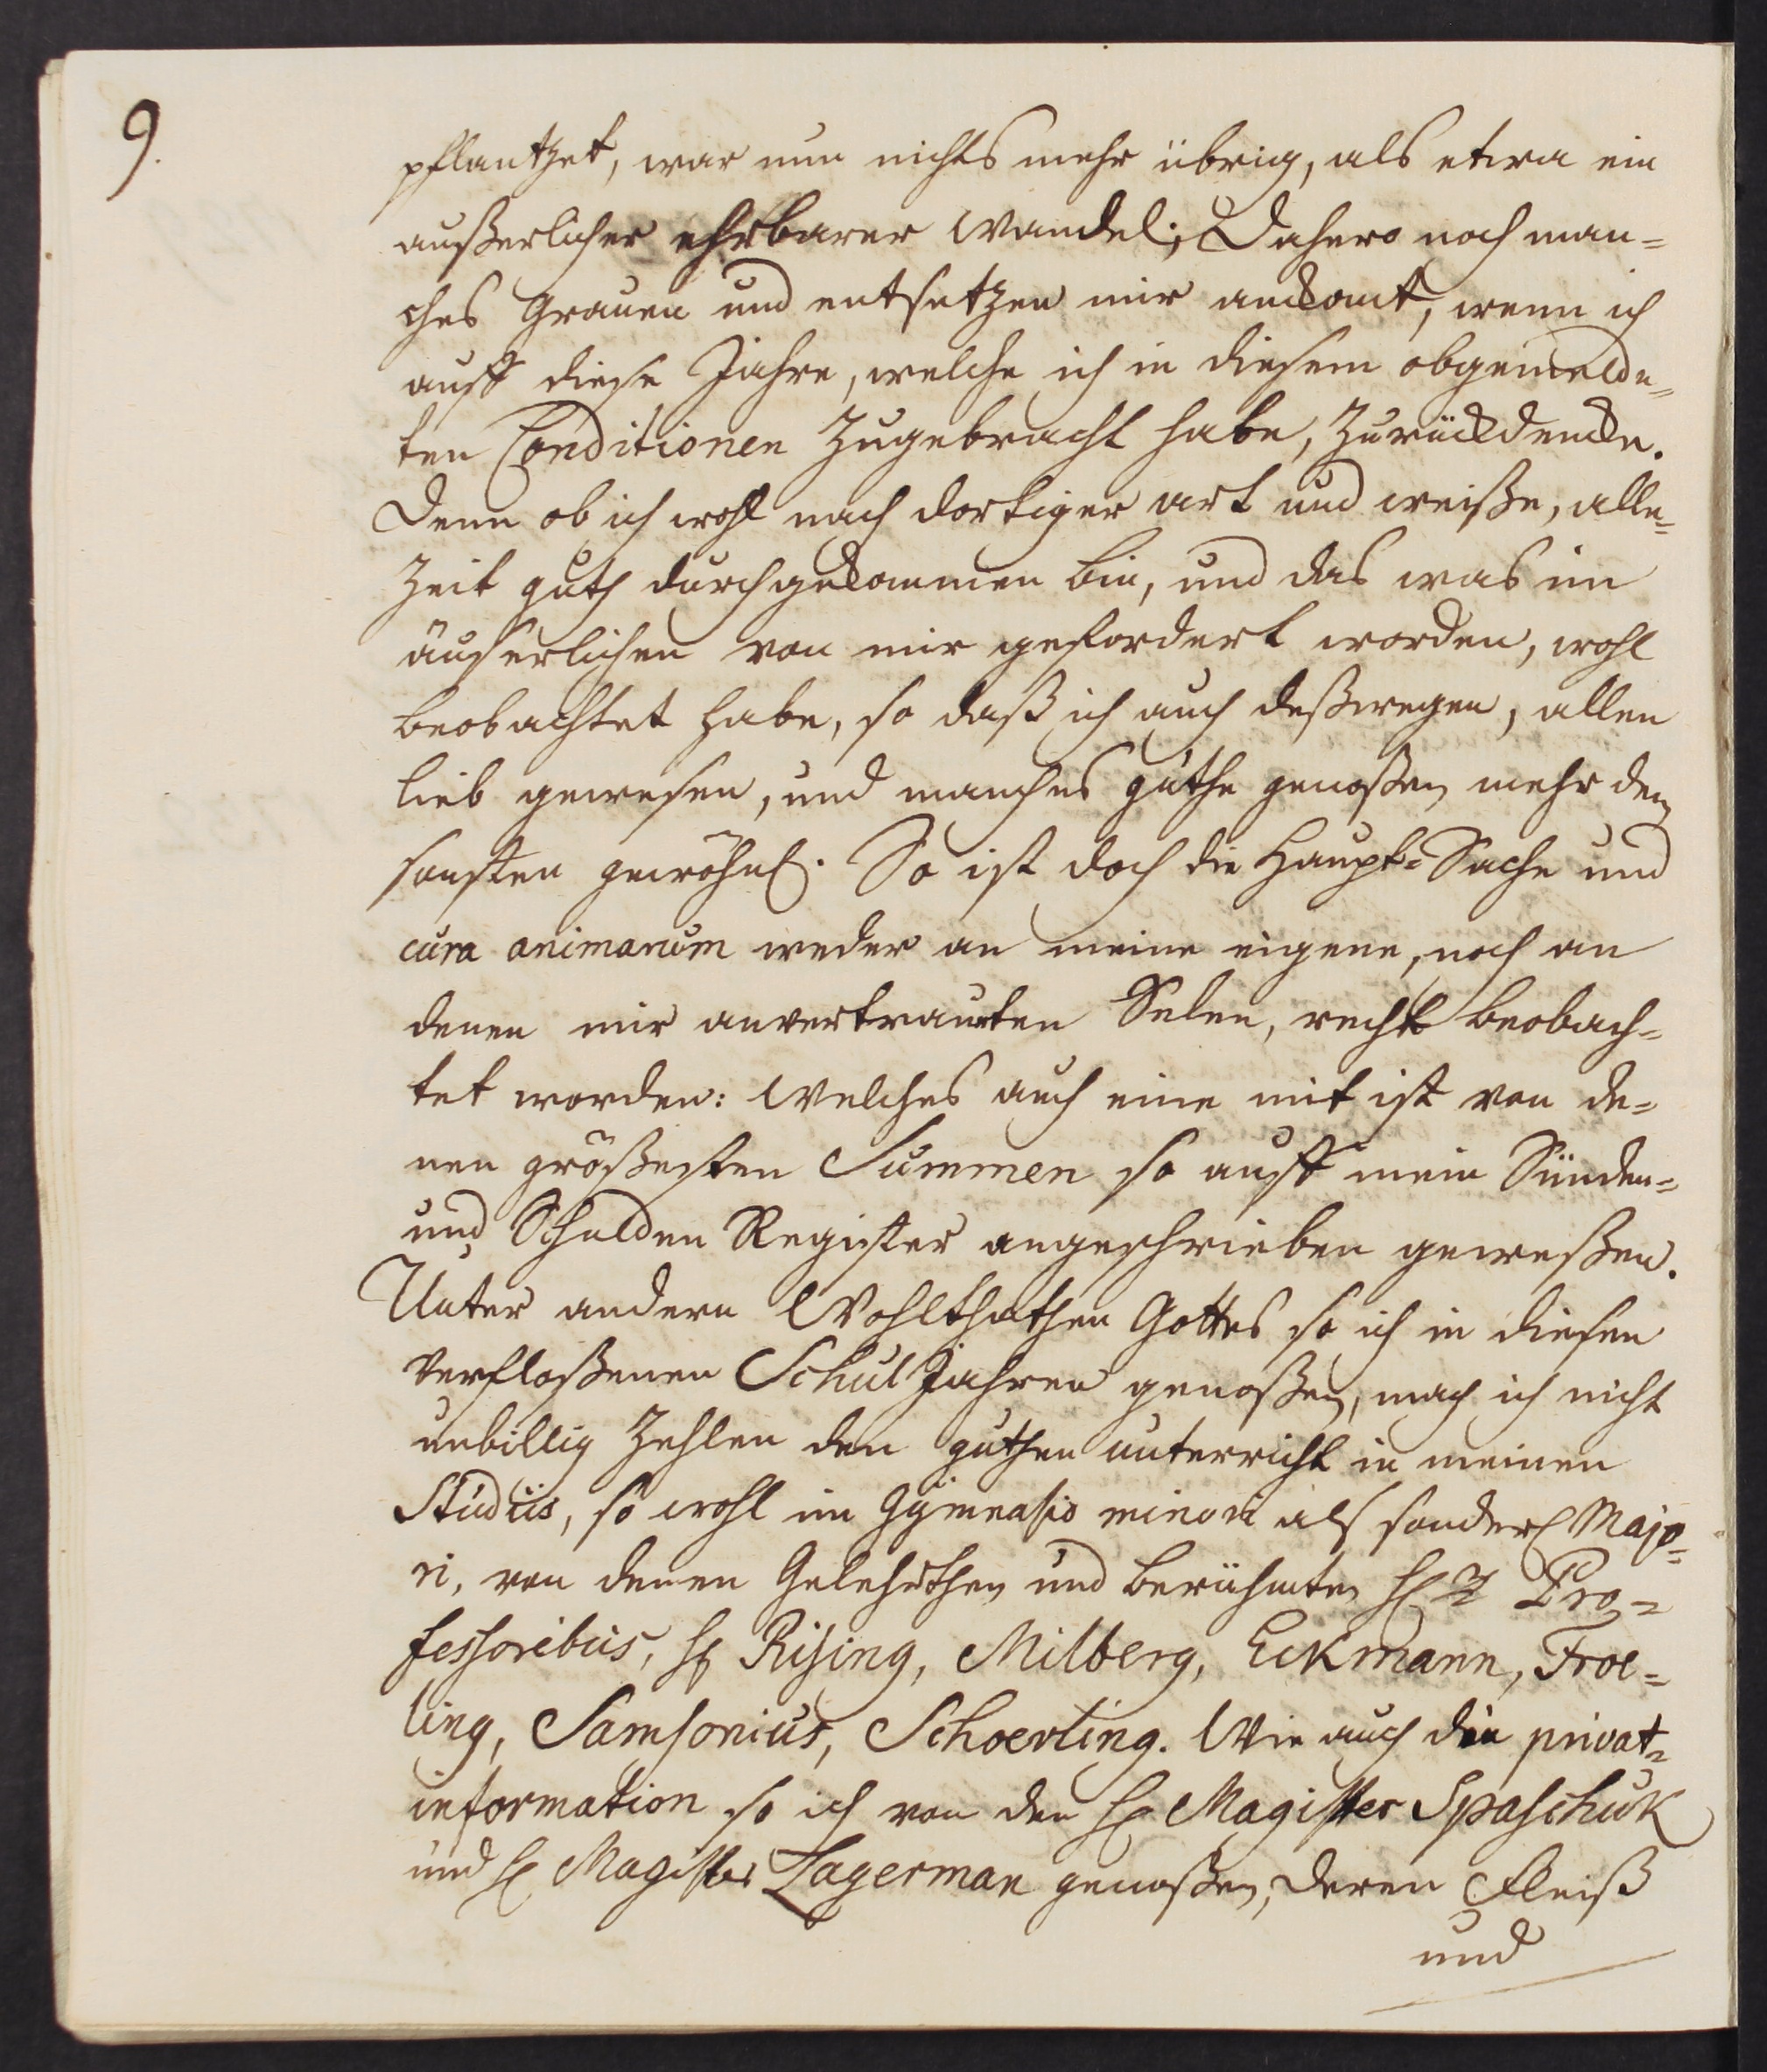 9.
pflantzet, war nun nichts mehr übrig, als etwa ein
außerlicher ehrbarer Wandel; Dahero noch man=
ches Grauen und entsetzen mir ankomt, wenn ich
auff diese Jahre, welche ich in diesem obgemelde=
ten Conditionen Zugebracht habe, Zurückdencke.
Denn ob ich wohl nach dortiger art und weiße, alle=
Zeit guth durchgekommen bin, und das was im
äuserlichen von mir gefordert worden, wohl
beobachtet habe, so daß ich auch deßwegen, allen
lieb gewesen, und manches guthe genoßen mehr den
sonsten gewöhnl. So ist doch die Haupt=Sache und
cura animarum weder an meine eigene, noch an
denen mir anvertrauten Selen, recht beobach=
tet worden: Welches auch eine mit ist von de=
nen größesten Summen so auff mein Sünden=
und Schulden Register angeschrieben geweßen.
Unter andern Wohlthathen Gottes so ich in diesen
verfloßenen Schul Jahren genoßen, mag ich nicht
unbillig Zehlen den guthen unterricht in meinen
Studiis, so wohl im Gÿmnasio minori als sonderl Majo=
ri, von denen Gelehrthen und berühmten H Pro=
fessoribus, H Rising, Milberg, Eckmann, Froe=
ling, Samsonius, Schoerling. Wie auch die privat=
information so ich von den H Magister Spaschuk
und H Magister Lagerman genoßen, deren Fleiß
und